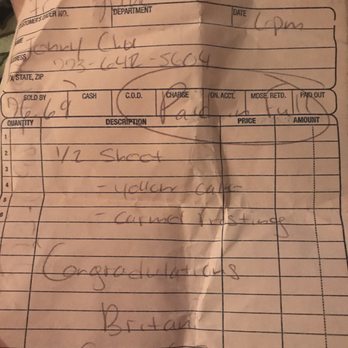 CUSTOMER'S ORDER NO. DEPARTMENT DATE
6pm
NAME
Jenny Chu
ADDRESS
223-642-5604
CITY, STATE, ZIP
SOLD BY CASH C.O.D. CHARGE ON. ACCT. MDSE. RETD. PAID OUT
76.69 Paid in full
QUANTITY DESCRIPTION PRICE AMOUNT
1
2 1/2 Sheet
3
4 - yellow cake
5
- Carmel frosting
Congradulations
Britani